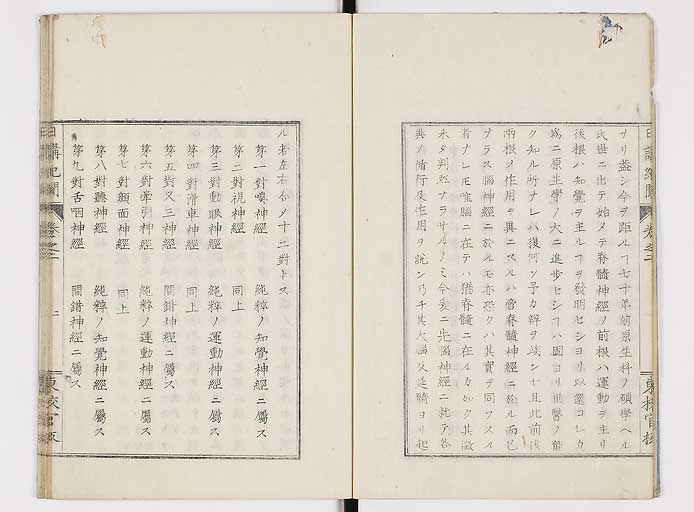 ヲリ蓋シ今ヲ距ルヿ七十年前原生科ノ碩學ベル
氏世ニ出テ始メテ脊髓神經ノ前根ハ運動ヲ主リ
後根ハ知覺ヲ主ルヿヲ發明セシヨリ以還コレカ
爲ニ原生學ノ大ニ進歩セシヿハ固ヨリ世醫ノ能
ク知ル所ナレハ復何ソ予カ辯ヲ竢ン且此前後
兩根ノ作用ヲ異ニスルハ啻脊髓神經ニ於ル而已
ナラス腦神經ニ於ルモ亦恐クハ其實ヲ同フスル
者ナレ𪜈唯腦ニ在テハ猶脊髓ニ在ルカ如ク其徴
未タ判然ナラサルノミ今爰ニ先腦神經ニ就テ各
其ノ循行及作用ヲ説ン乃チ其大腦及延髓ヨリ起
日講紀聞 卷之二 東校官板
ル者左右合ノ十二對トス
第一對嗅神經 純粹ノ知覺神經ニ屬ス
第二對視神經 同上
第三對動眼神經 純粹ノ運動神經ニ屬ス
第四對滑車神經 同上
第五對叉三神經 間錯神經ニ屬ス
第六對牽引神經 純粹ノ運動神經ニ屬ス
第七對顔面神經 同上
第八對聽神經 純粹ノ知覺神經ニ屬ス
第九對舌咽神經 間錯神經ニ屬ス
日講紀聞 卷之二 二 東校官板